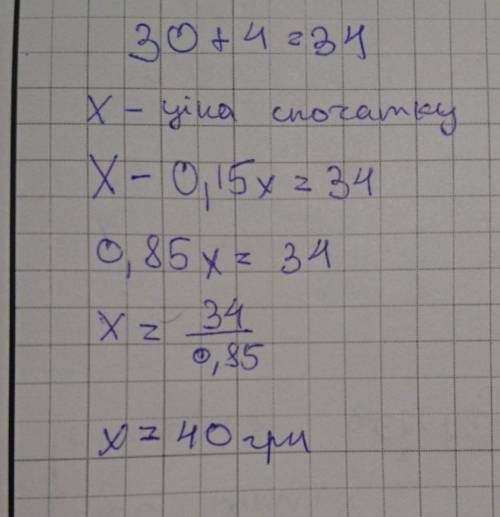 30 + 4 = 34
x - ціна спочатку
x - 0,15x = 34
0,85x = 34
x = 34/0,85
x = 40 грн